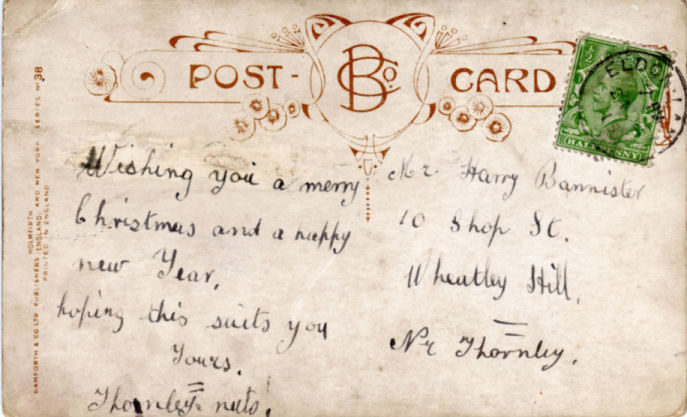 POST-CARD
B Co.
Wishing you a merry
Christmas and a happy
new Year,
hoping this suits you
Yours.
Thornley nuts!
Mr Harry Bannister
10 Shop St.
Wheatley Hill,
Nr Thornley.
½
HALFPENNY
ELDO
BAMFORTH & CO LTD PUBLISHERS (ENGLAND) AND NEW YORK SERIES No 38
HOLMFIRTH
PRINTED IN ENGLAND